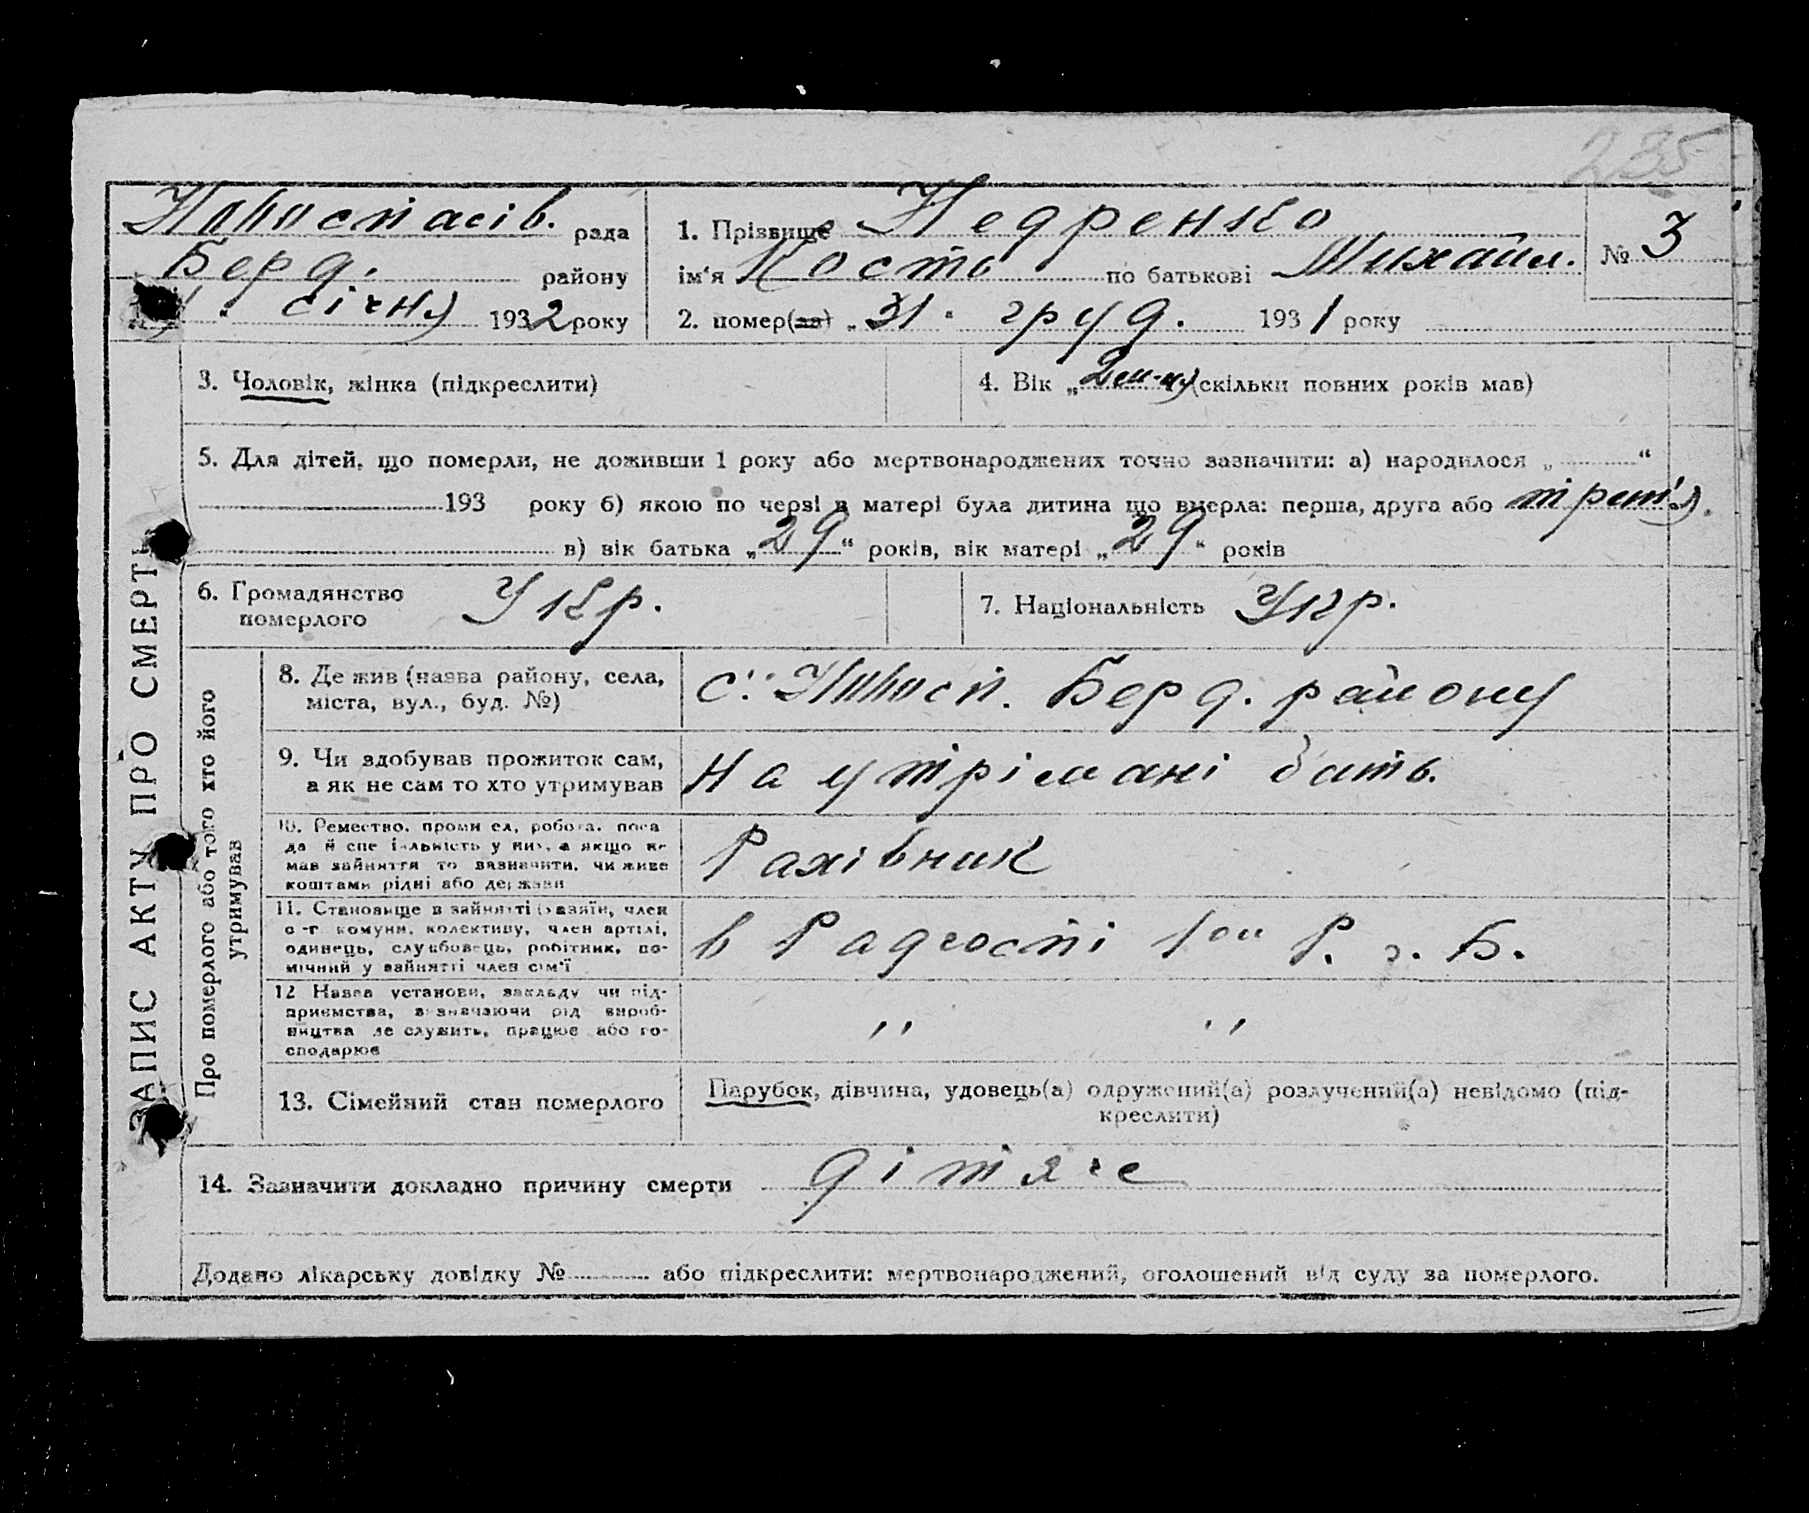 235
Новоспасів. рада
Берд. району
січня 1932 року
1. Прізвище Недренко
ім'я Кость по батькові Михайл.
2. помер(ла) „31" груд. 1931 року
№ 3
ЗАПИС АКТУ ПРО СМЕРТЬ
3. Чоловік, жінка (підкреслити)
4. Вік „2 (скільки повних років мав)
5. Для дітей, що померли, не доживши 1 року або мертвонароджених точно зазначити: а) народилося „ “
193 року б) якою по черзі в матері була дитина що вмерла: перша, друга або третя.
в) вік батька „29“ років, вік матері „29“ років
6. Громадянство Укр.
померлого
7. Національність Укр.
Про померлого або того хто його
утримував
8. Де жив (назва району, села,
міста, вул., буд. №)
с. Новосп. Берд. району
9. Чи здобував прожиток сам,
а як не сам то хто утримував
на утрімані бать.
10. Ремество, промисел, робота, поса
да й спеціяльність у них, а якщо не
мав зайняття то зазначити, чи живе
коштами рідні або держави
Рахівник
11. Становище в зайнятті (хазяїн, член
с-г комуни, колективу, член артілі,
одинець, службовець, робітник, по-
мічний у зайнятті член сім'ї
в Радгоспі
12 Назва установи, закладу чи під-
приємства, зазначаючи рід вироб-
ництва де служить, працює або го-
сподарює
" "
13. Сімейний стан померлого
Парубок, дівчина, удовець(а) одружений(а) розлучений(а) невідомо (під-
креслити)
14. Зазначити докладно причину смерти дітяче
Додано лікарську довідку № або підкреслити: мертвонароджений, оголошений від суду за померлого.